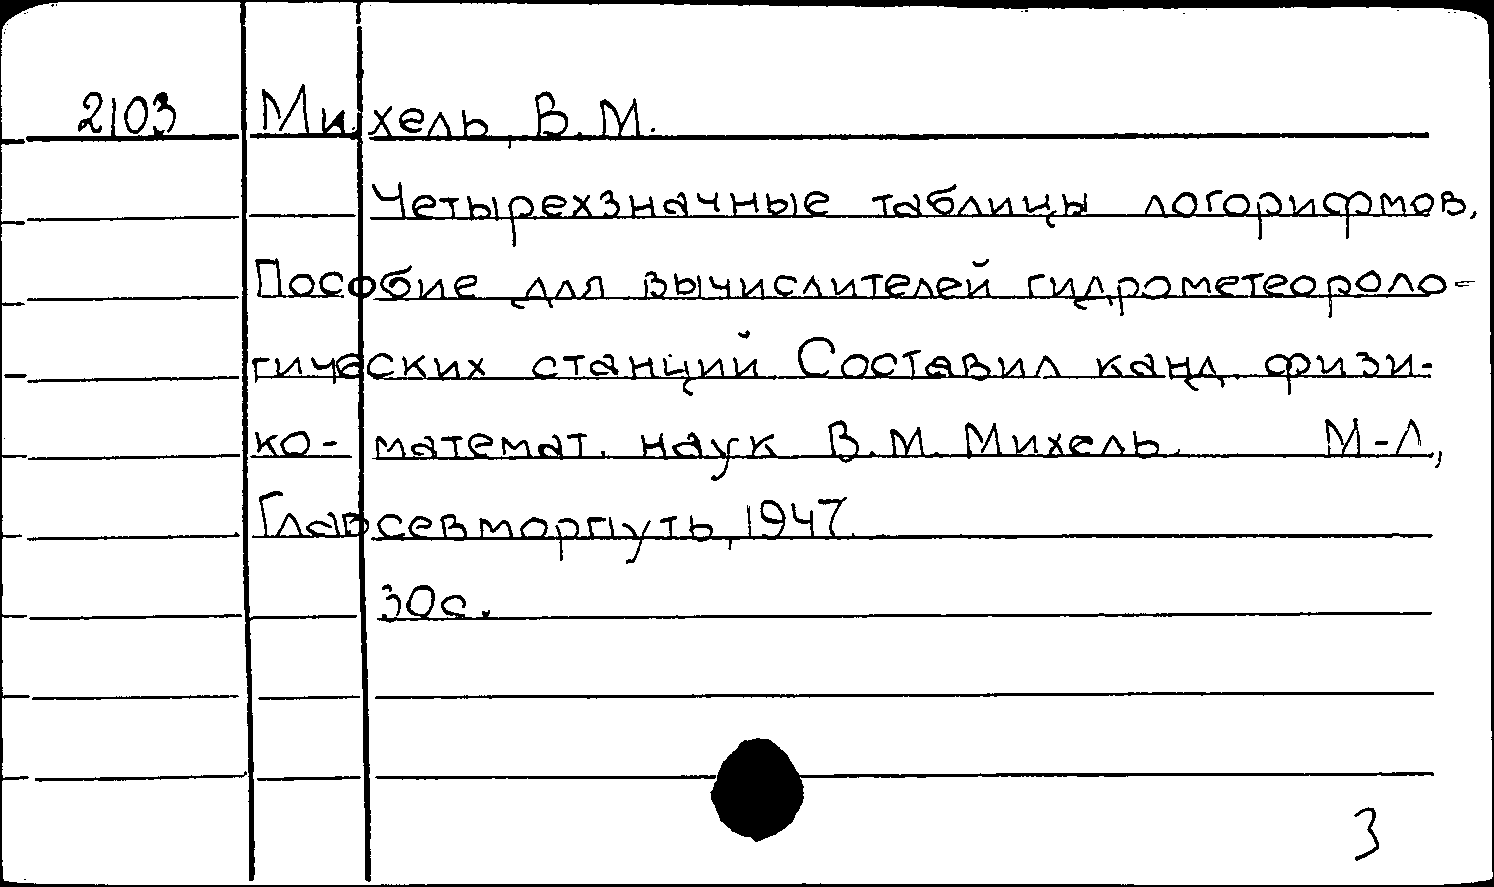 2103 Михель, В.М.
Четырехзначные таблицы логорифмов.
Пособие для вычислителей гидрометеороло-
гических станций Составил канд. физи-
ко- математ. наук В.М. Михель. М-Л,
Главсевморпуть, 1947.
30с.
3